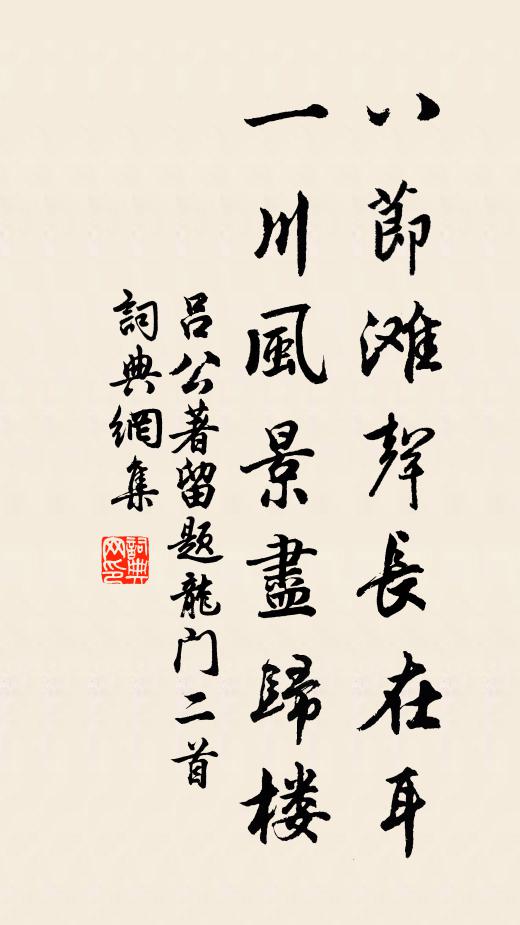 八節滩聲長在耳
一川風景盡歸楼
吕公著留题龍门二首
詞典網集
詞典网印